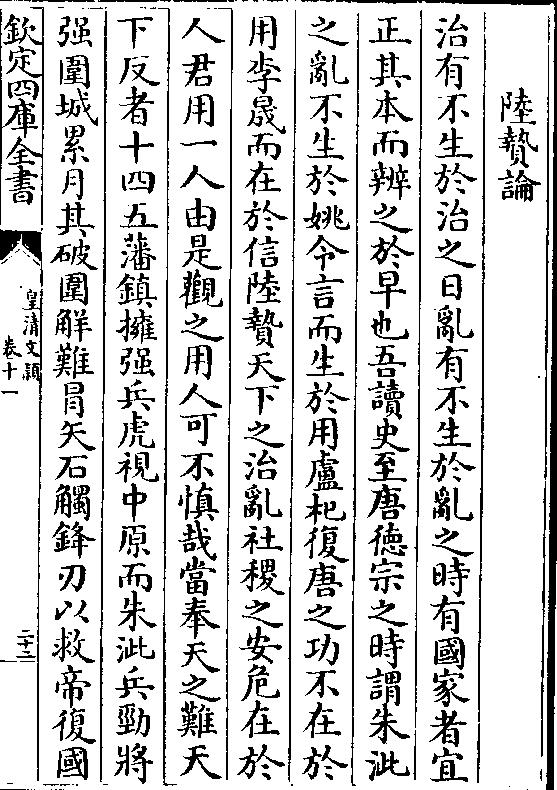 陸贄論
治有不生於治之日亂有不生於亂之時有國家者宜
正其本而辨之於早也吾讀史至唐德宗之時謂朱泚
之亂不生於姚令言而生於用盧杞復唐之功不在於
用李晟而在於信陸贄天下之治亂社稷之安危在於
人君用一人由是觀之用人可不慎哉當奉天之難天
下反者十四五藩鎮擁强兵虎視中原而朱泚兵勁將
强圍城累月其破圍解難冒矢石觸鋒刃以救帝復國
欽定四庫全書
皇清文頴
卷十一
二十二